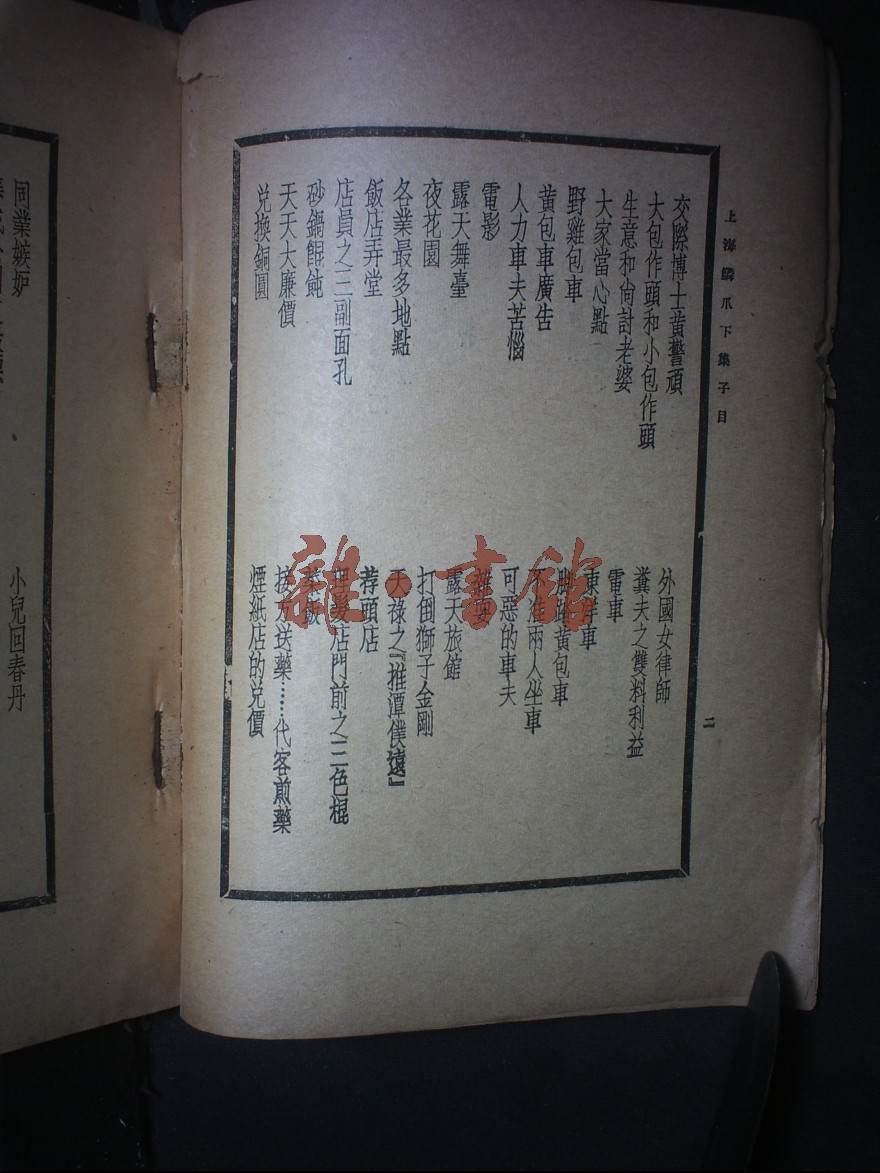 上海鱗爪下集子目
二
交際博士黃警頑
大包作頭和小包作頭
生意和尙討老婆
大家當心點
野雞包車
黃包車廣告
人力車夫苦惱
電影
露天舞臺
夜花園
各業最多地點
飯店弄堂
店員之三副面孔
砂鍋餛飩
天天大廉價
兌換銅圓
外國女律師
糞夫之雙料利益
電車
東洋車
野路黃包車
不准兩人坐車
可惡的車夫
露天旅館
打倒獅子金剛
天祿之『推潭僕遠』
荐頭店
理髮店門前之三色棍
菜飯
接方送藥……代客煎藥
煙紙店的兌價
同業嫉妒
小兒回春丹
雜·書館